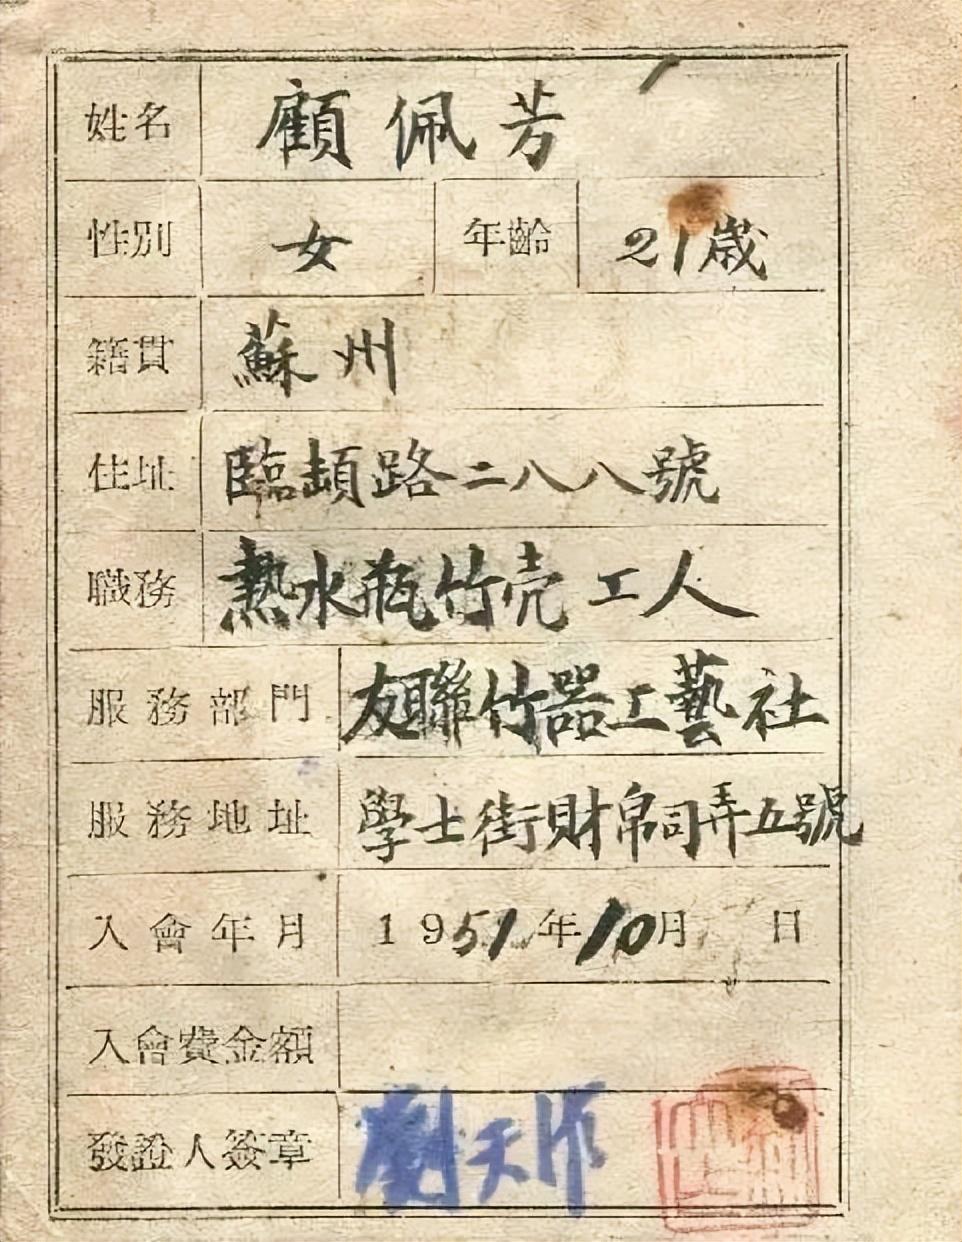 姓名 顧佩芳
性別 女 年齡 21歲
籍貫 蘇州
住址 臨頓路二八八號
職務 熱水瓶竹壳工人
服務部門 友聯竹器工藝社
服務地址 學士街財帛司弄五號
入會年月 1951年10月 日
入會費金額
發證人簽章 劉天